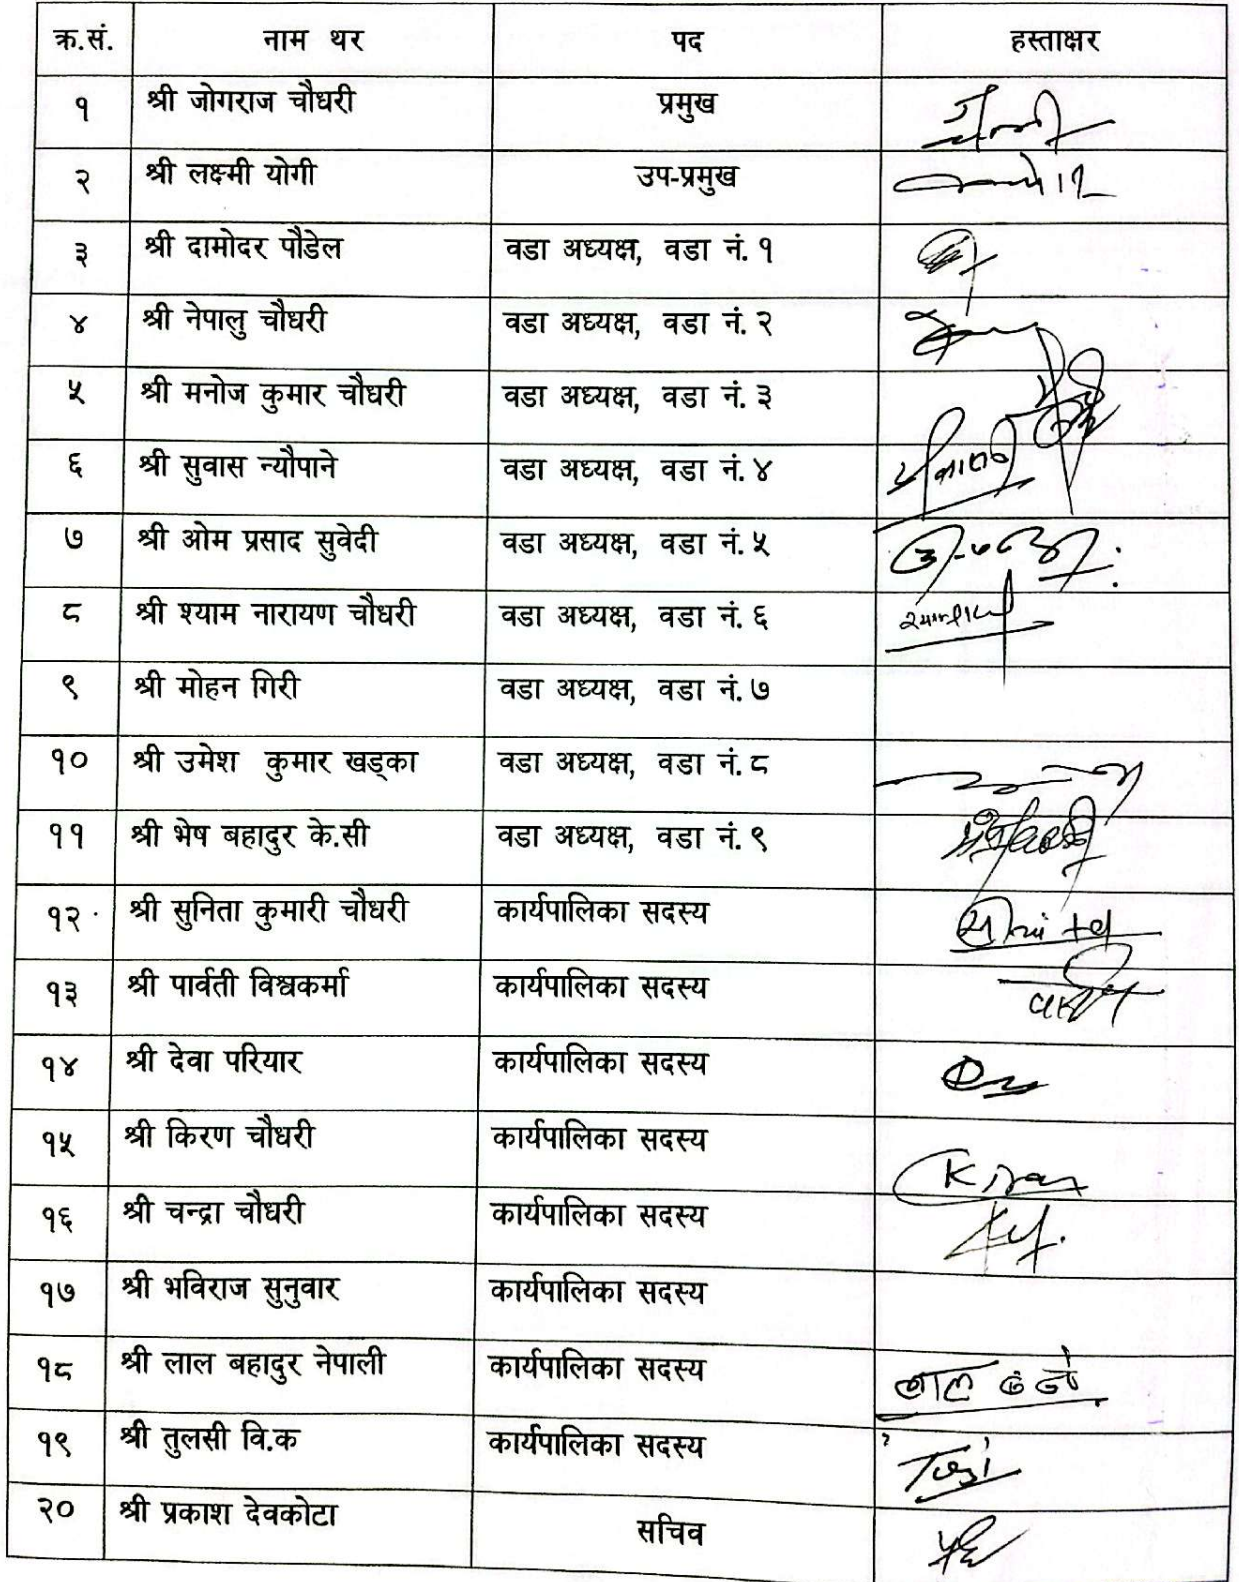 क्र.सं. नाम थर पद हस्ताक्षर
१ श्री जोगराज चौधरी प्रमुख
२ श्री लक्ष्मी योगी उप-प्रमुख
३ श्री दामोदर पौडेल वडा अध्यक्ष, वडा नं. १
४ श्री नेपालु चौधरी वडा अध्यक्ष, वडा नं. २
५ श्री मनोज कुमार चौधरी वडा अध्यक्ष, वडा नं. ३
६ श्री सुवास न्यौपाने वडा अध्यक्ष, वडा नं. ४
७ श्री ओम प्रसाद सुवेदी वडा अध्यक्ष, वडा नं. ५
८ श्री श्याम नारायण चौधरी वडा अध्यक्ष, वडा नं. ६
९ श्री मोहन गिरी वडा अध्यक्ष, वडा नं. ७
१० श्री उमेश कुमार खड्का वडा अध्यक्ष, वडा नं. ८
११ श्री भेष बहादुर के.सी वडा अध्यक्ष, वडा नं. ९
१२ श्री सुनिता कुमारी चौधरी कार्यपालिका सदस्य
१३ श्री पार्वती विश्वकर्मा कार्यपालिका सदस्य
१४ श्री देवा परियार कार्यपालिका सदस्य
१५ श्री किरण चौधरी कार्यपालिका सदस्य
१६ श्री चन्द्रा चौधरी कार्यपालिका सदस्य
१७ श्री भविराज सुनुवार कार्यपालिका सदस्य
१८ श्री लाल बहादुर नेपाली कार्यपालिका सदस्य लाल
१९ श्री तुलसी वि.क कार्यपालिका सदस्य
२० श्री प्रकाश देवकोटा सचिव